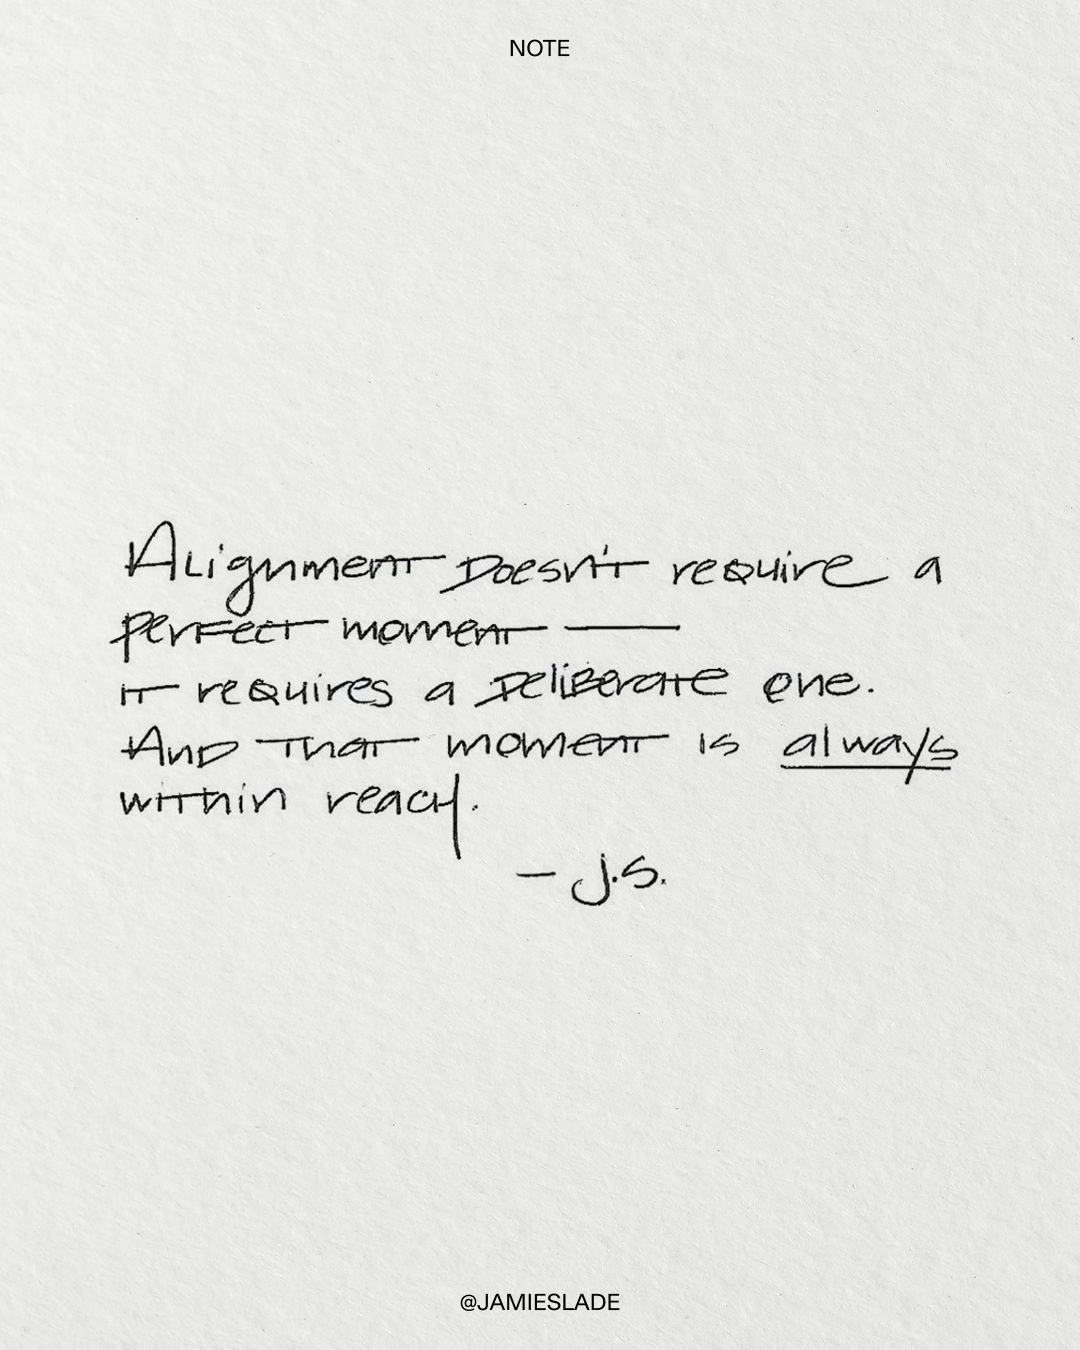 NOTE
Alignment Doesn't require a
perfect moment —
it requires a Deliberate one.
And That moment is always
within reach.
– J.S.
@JAMIESLADE